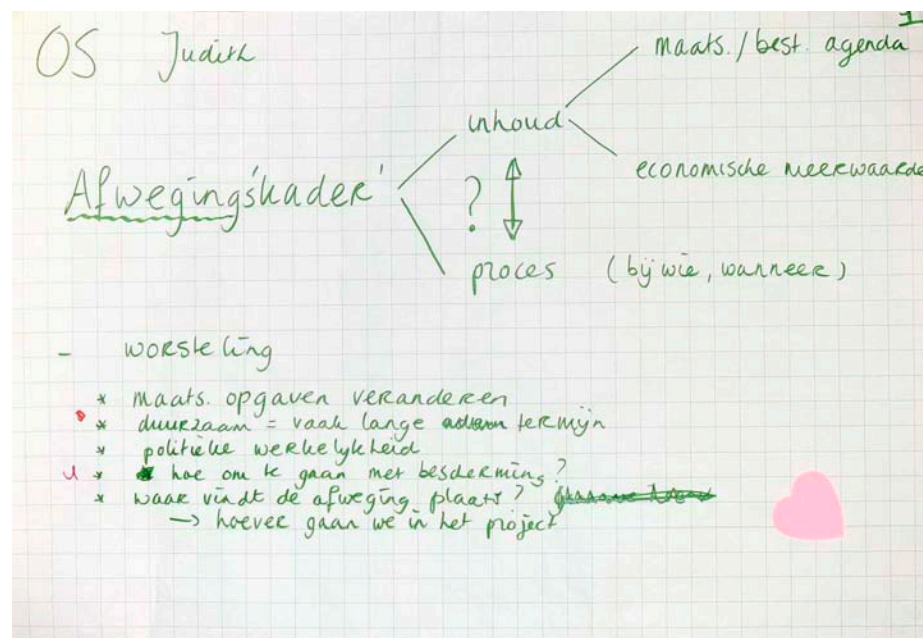 1
OS Judith
maats. / best. agenda
inhoud
economische meerwaarde
Afwegings'kader'
?
proces (bij wie, wanneer)
- worsteling
* maats. opgaven veranderen
* duurzaam = vaak lange termijn
* politieke werkelijkheid
* hoe om te gaan met bescherming?
* waar vindt de afweging plaats?
→ hoever gaan we in het project